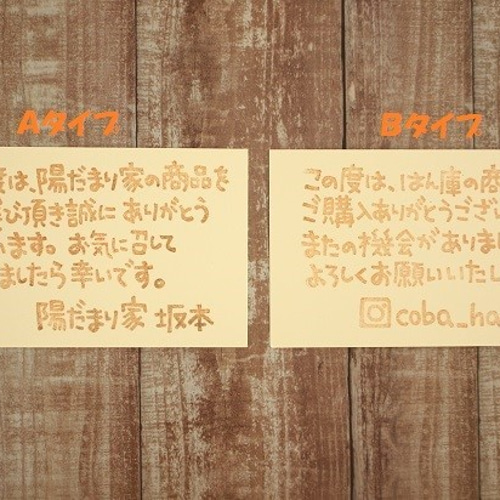 Aタイプ
度は、陽だまり家の商品を
び頂き誠にありがとう
います。お気に召して
ましたら幸いです。
陽だまり家 坂本
Bタイプ
この度は、はん庫の商
ご購入ありがとうござ
またの機会がありま
よろしくお願いいたし
coba_ha